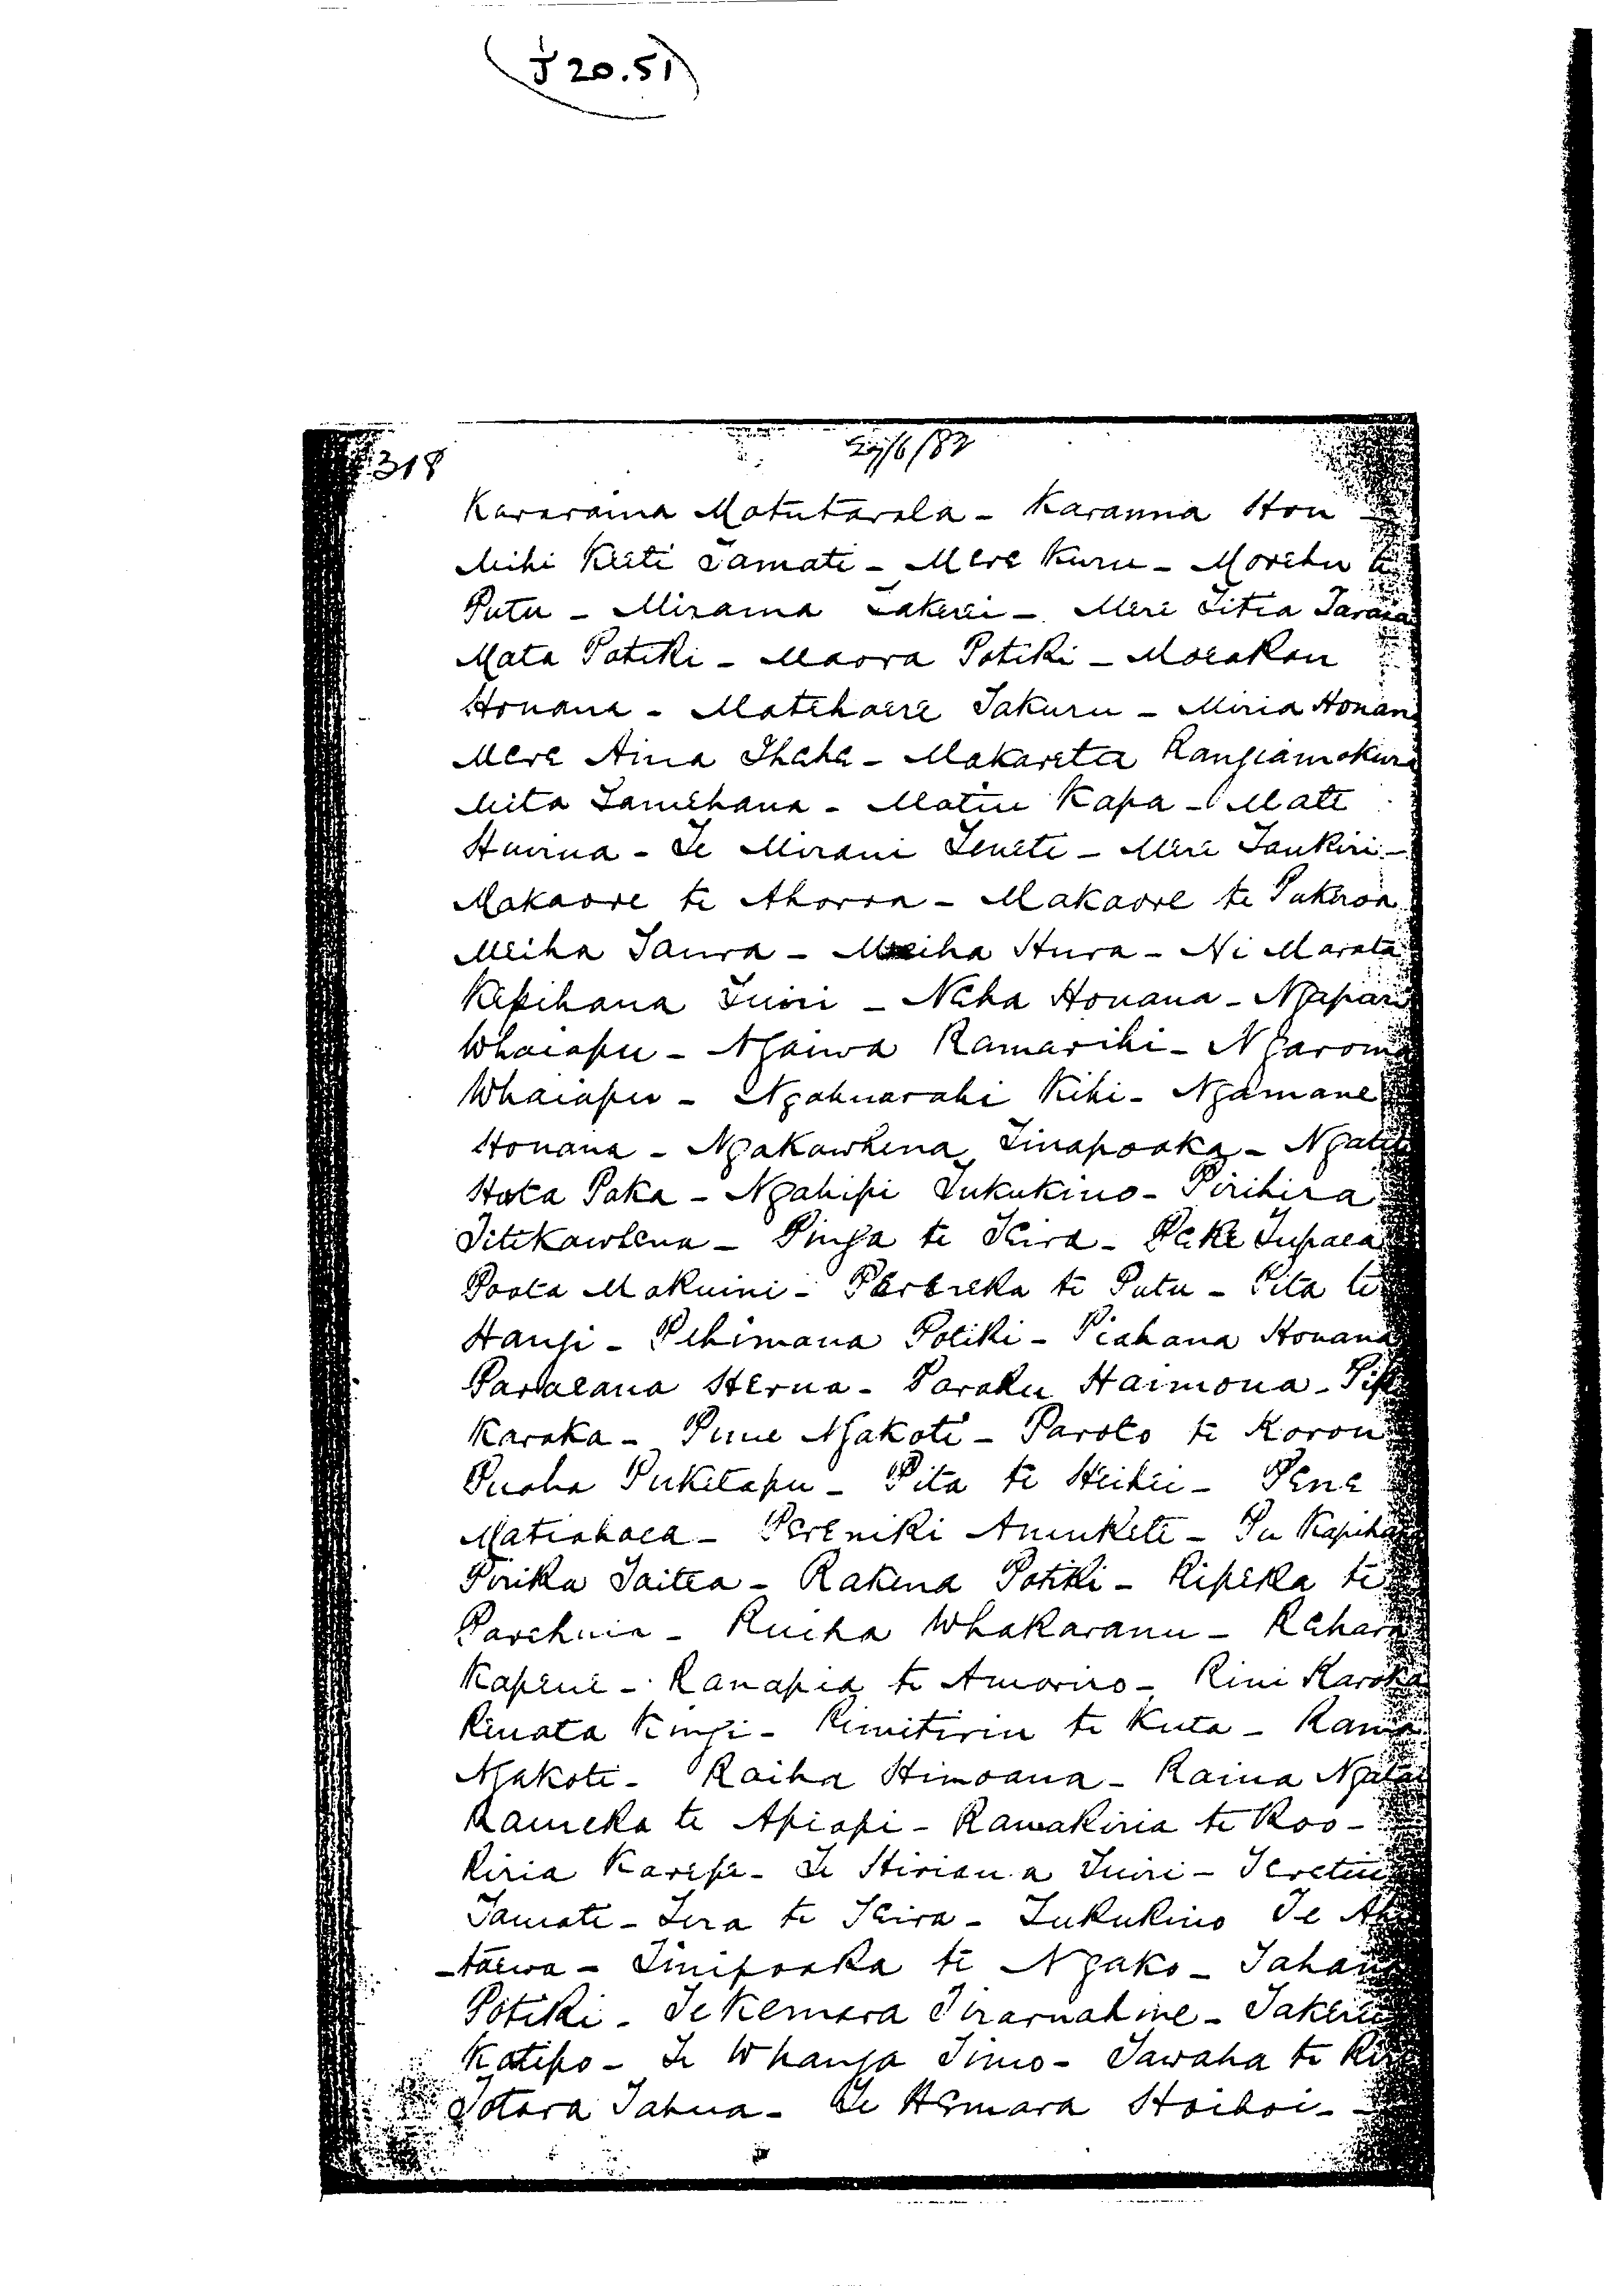 J 20.51
318
Kararaina Motutarata - Karanna Hou -
Mihi Keeti Tamati - Mere Kuru - Morehu te
Putu - Mirama Takerei - Mere Titia Taraia
Mata Potiki - Maora Potiki - Moeakau
Honana - Matehaere Takuru - Miria Honan
Mere Aina Ihaha - Makareta Rangiamokura
Mita Tamihana - Matiu Kapa - Mate
Huirua - Te Mirani Tenete - Mere Taukiri -
Makaore te Ahoroa - Makaore te Pukeroa
Meiha Taura - Meiha Hura - Ni Marata
Kepihana Tuiri - Neha Honana - Ngapari
Whaiapu - Ngaiwa Ramarihi - Ngaroma
Whaiapu - Ngahuarahi Kihi - Ngamane
Honana - Ngakawhena Tinapoaka - Ngatete
Hota Paka - Ngahipi Tukukino - Pirihira
Titikawhena - Pinga te Teira - Peke Tupaea
Poata Makuini - Pererika te Putu - Pita te
Hangi - Pehimana Potiki - Piahana Honana
Paraeana Herua - Paraku Haimona - Pip
Karaka - Pine Ngakoti - Paroto te Korou
Puaha Puketapu - Pita te Heihei - Pene
Matiahaea - Pereniki Anukete - Pu Kapihana
Pirika Taitea - Rakena Potiki - Ripeka te
Parehuia - Ruiha Whakaranu - Rahara
Kapene - Ranapia te Amoriro - Rini Karaka
Rinata Kingi - Rimitiriu te Kuta - Rama
Ngakoti - Raiha Himoana - Raina Ngatai
Rameka te Apiapi - Ramakiria te Roo -
Riria Karepe - Te Hiriana Tuiri - Teretiu
Tamati - Tira te Teira - Tukukino Te Ahi
-taewa - Tinipoaka te Ngako - Tahana
Potiki - Te Kemara Tiraruahine - Takerei
Katipo - Te Whanga Timo - Tawaha te Kiri
Totara Tahua - Te Hemara Hoihoi -